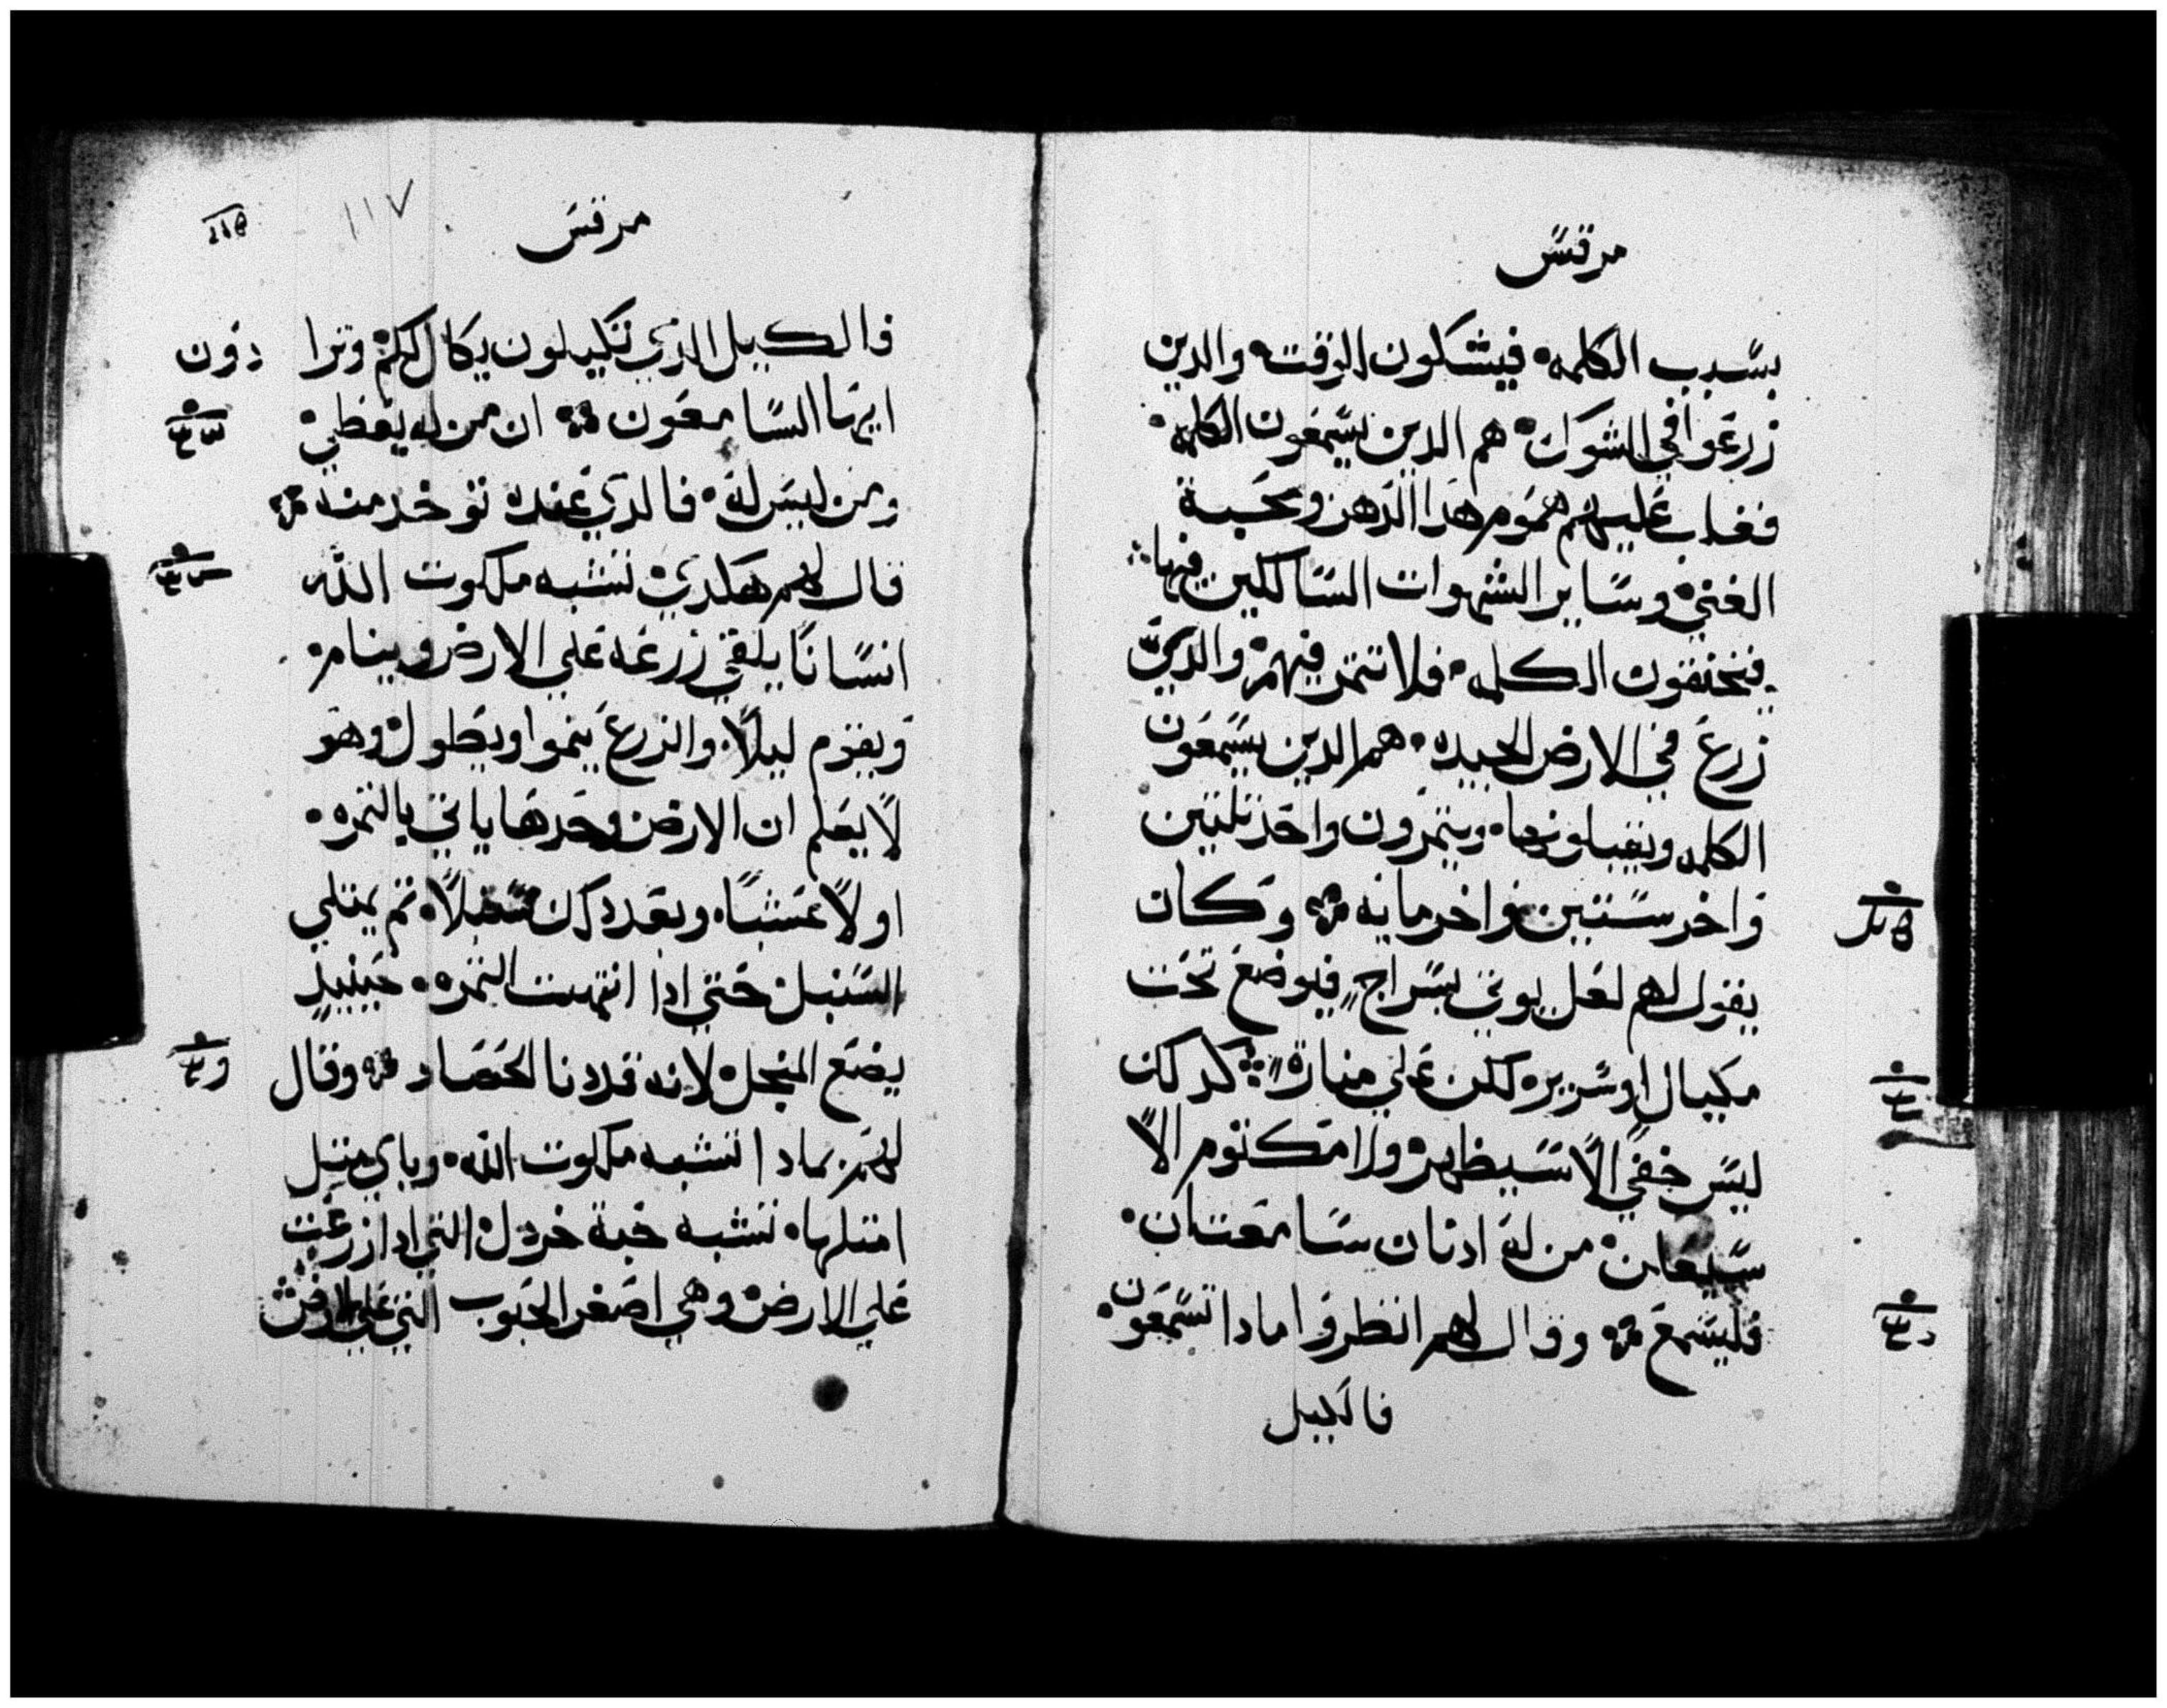 مرقس
بسبب الكلمه فيشكون للوقت والدين
زرعوا في الشوك هم الدين يسمعون الكلمه
فغلب عليهم هموم هدا الدهر ومحبة
الغني وساير الشهوات السالكين فيها
فيختنقون الكلمه فلا تتمر فيهم والدين
زرع في الارض الجيده هم الدين يسمعون
الكلمه ويقبلونها ويتمرون واحد تلتين
واخر ستين واخر مايه وكان
يقول لهم لعل يوتي بسراج فيوضع تحت
مكيال او سرير لكن علي مناره كدلك
ليس خفي الا سيظهر ولا مكتوم الا
سيعلن من له ادنان سامعتان
فليسمع وقال لهم انظروا مادا تسمعون
فالكيل
مرقس
١١٧
فالكيل الدي تكيلون يكال لكم وتزادون
ايها السامعون ان من له يعطي
ومن ليس له فالدي عنده توخد منه
قال لهم هكدي تشبه ملكوت الله
انسانا يلقي زرعه علي الارض وينام
ويقوم ليلا والزرع ينموا ويطول وهو
لا يعلم ان الارض وحدها ياتي بالتمره
اولا عشبا وبعد دلك سنبلا تم يمتلي
السنبل حتي ادا انتهت التمره حينيد
يضع المنجل لانه قد دنا الحصاد وقال
لهم بمادا نشبه ملكوت الله وباي متل
امتلها تشبه حبة خردل التي ادا زرعت
علي الارض وهي اصغر الحبوب التي علي الارض